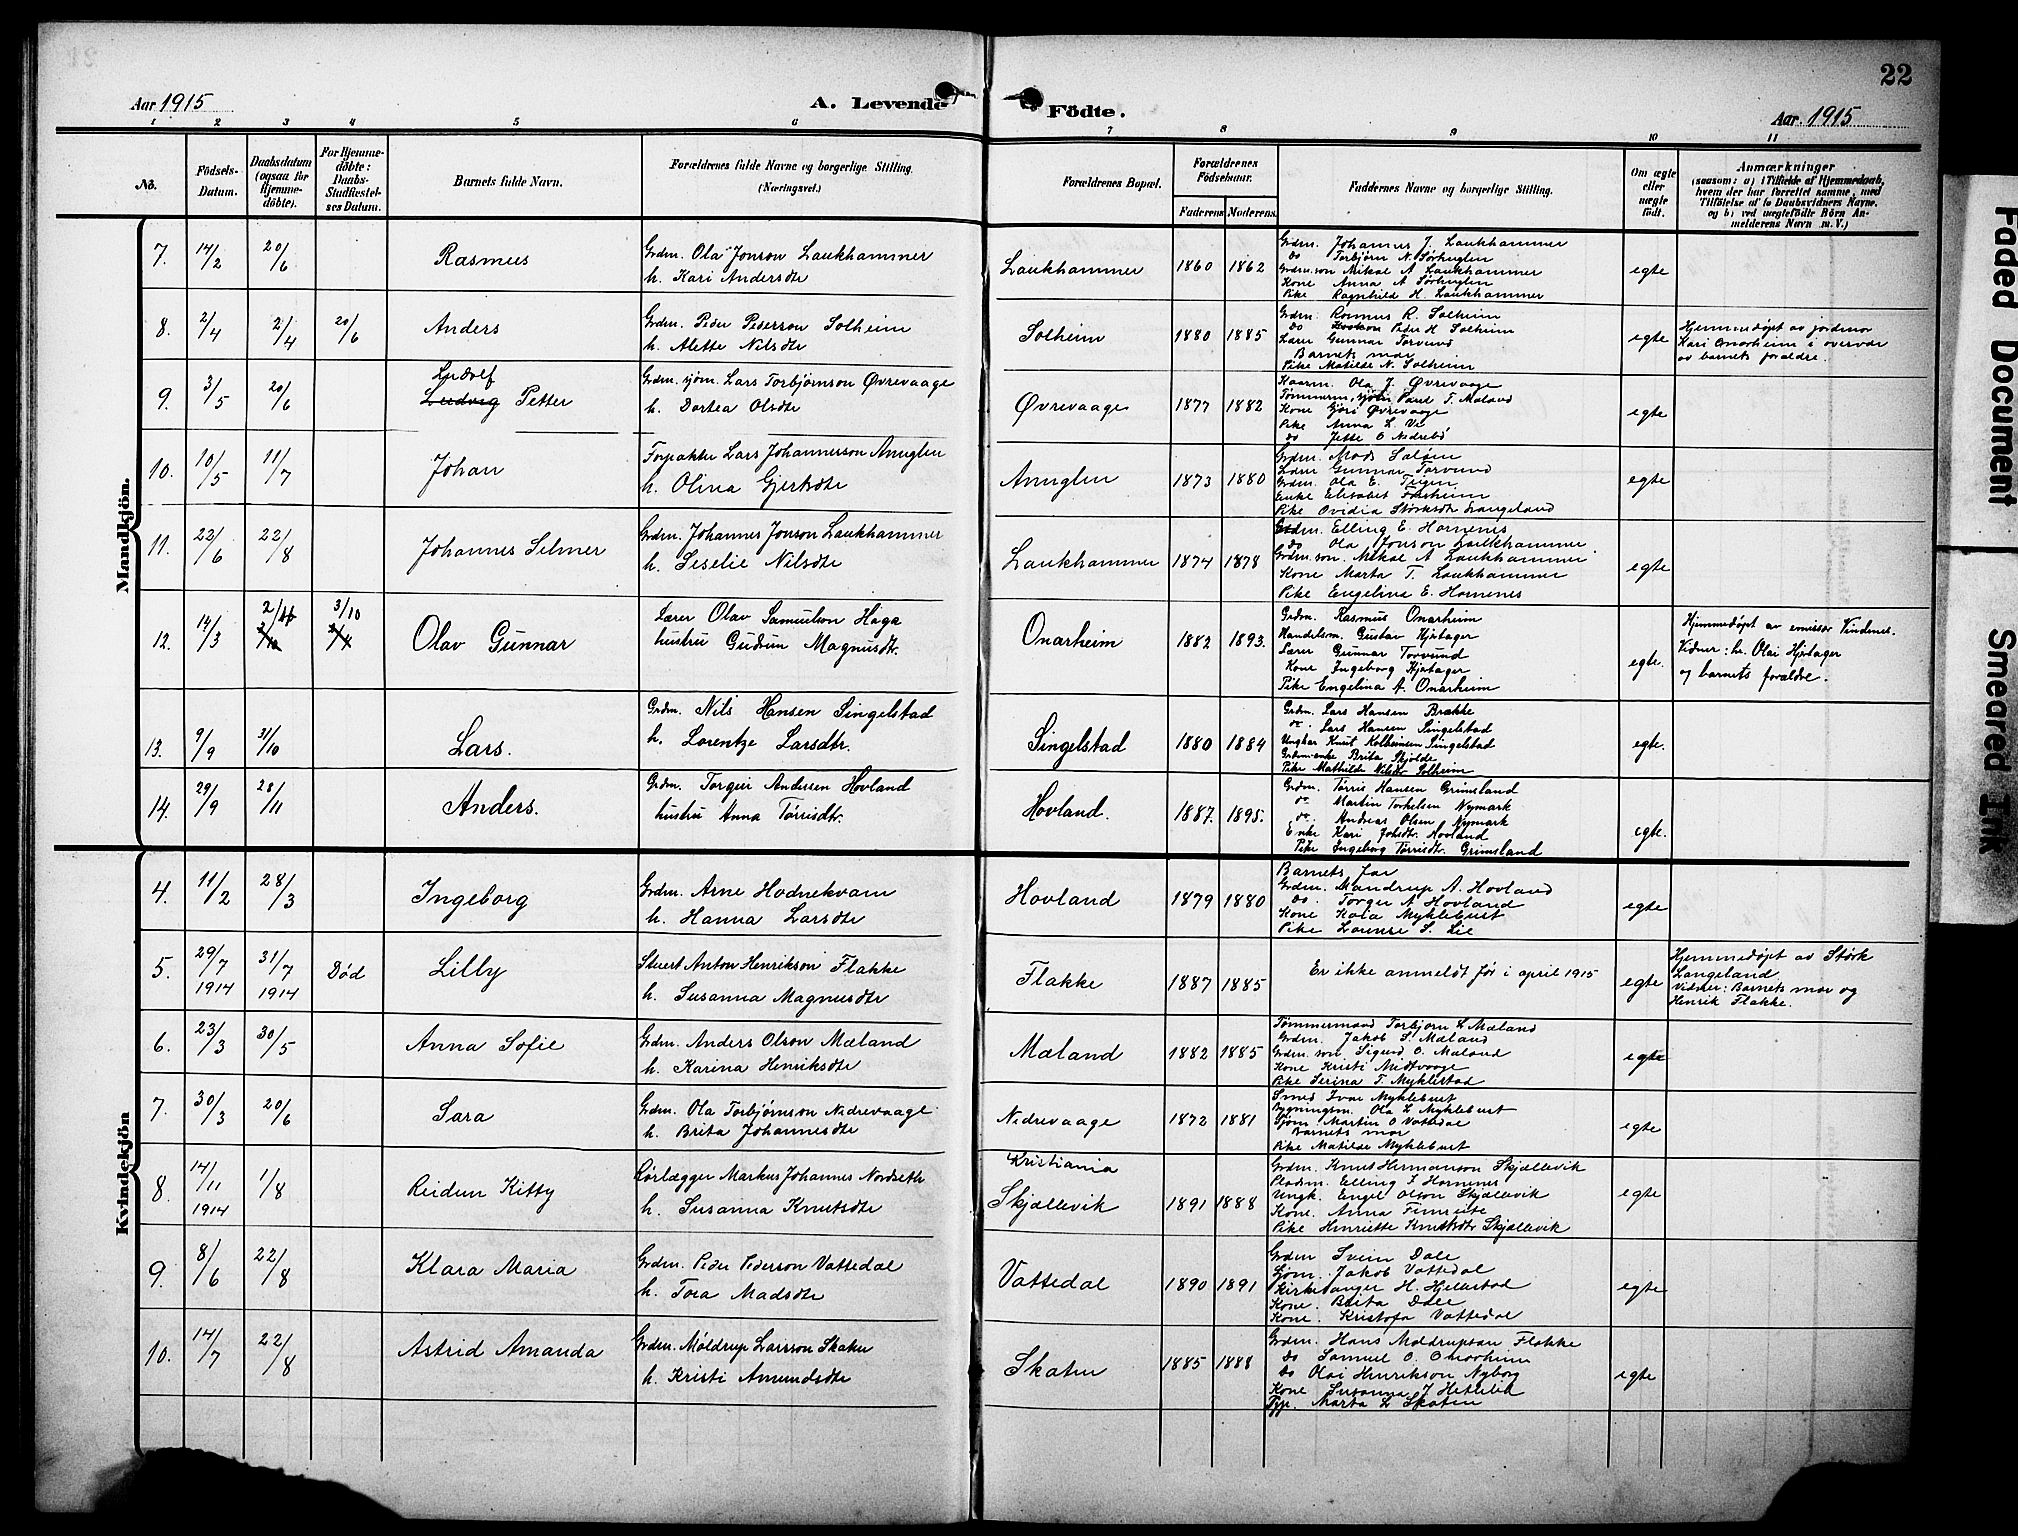 22
Aar 1915
A. Levende
Födte.
Aar 1915
1 2 3 4 5 6 7 8 9 10 11
No.
Födsels-
Datum.
Daabsdatum
(ogsaa for
Hjemme-
döbte).
For Hjemme-
döbte:
Daabs-
Stadfæstel-
ses Datum.
Barnets fulde Navn.
Forældrenes fulde Navne og borgerlige Stilling.
(Næringsvei.)
Forældrenes Bopæl.
Forældrenes
Födselsaar.
Faderens Moderens
Faddernes Navne og borgerlige Stilling.
Om ægte
eller
uægte
födt.
Anmærkninger
(saasom: a) i Tilfælde af Hjemmedaab,
hvem der har forrettet samme, med
Tilföielse af to Daabsvidners Navne,
og b) ved uægtefödte Börn An-
melderens Navn m. V.)
Mandkjön.
7. 14/2 20/6 Rasmus
Grdm. Ola Jonson Laukhammer
h. Kari Andersdtr
Laukhammer 1860 1862
Grdm. Johannes J. Laukhammer
do Torbjørn N. Sørhuglen
Grdm.son Mikal A Laukhammer
Kone Anna A Sørhuglen
Pike Ragnhild H. Laukhammer
egte
8. 2/4 2/4 20/6 Anders
Grdm. Peder Pederson Solheim
h. Alette Nilsdtr
Solheim 1880 1885
Grdm. Rasmus R. Solheim
do Peder H Solheim
Lærer Gunnar Torvund
Barnets mor
Pike Matilde N. Solheim
egte
Hjemmedøpt av jordmor
Kari Onarheim i overvær
av barnets forældre.
9. 3/5 20/6 Ludolf
Ludvig Petter
Grdm. sjøm. Lars Torbjørnson Øvrevaage
h. Dortea Olsdtr
Øvrevaage 1877 1882
Kaarm. Ola J. Øvrevaage
Tømmerm, sjøm Paul T. Mæland
Kone Gjøri Øvrevaage
Pike Anna L. Ve
do Jette O Nedrebø
egte
10. 10/5 11/7 Johan
Forpakter Lars Johannesson Anuglen
h. Olina Gjertsdtr
Anuglen 1873 1880
Grdm. Mads Saløen
Lærer Gunnar Torvund
Grdm. Ola E. Teigen
Enke Elisabet Forsheim
Pike Ovidia Størksdtr Langeland
egte
11. 23/6 22/8 Johannes Selmer
Grdm. Johannes Jonson Laukhammer
h. Seselie Nilsdtr
Laukhammer 1874 1878
Grdm. Elling E. Hornenes
do Ola Jonson Laukhammer
Grdm.son. Mikal A Laukhammer
Kone Marta T. Laukhammer
Pike Engelina E. Hornenes
egte
12. 14/3 2/4 3/10 Olav Gunnar
Lærer Olav Samuelson Haga
hustru Gudrun Magnusdtr.
Onarheim 1882 1893.
Grdm. Rasmus Onarheim
Handelsm. Gustav Hjøtager
Lærer Gunnar Torvund
Kone Ingeborg Hjøtager
Pike Engelina A. Onarheim
egte.
Hjemmedøpt av emissær Vindenes.
Vidner: hr. Olai Hjøtager
og barnets forældre.
13. 9/9 31/10 Lars.
Grdm. Nils Hansen Singelstad
h. Lorentze Larsdtr.
Singelstad 1880 1884
Grdm. Lars Hansen Brække
do. Lars Hansen Singelstad
Ungkar Knut Kolbeinsen Singelstad
Grdm.enke Brita Skjolde
Pike Mathilde Nilsdtr Solheim
egte.
14. 29/9 28/11 Anders.
Grdm. Torgeir Andersen Hovland
hustru Anna Tørrisdtr.
Hovland. 1887. 1895.
Grdm. Tørris Hansen Grimsland
do. Martin Torkelsen Nymark
do. Andreas Olsen Nymark
Enke Kari Johsdtr. Hovland
Pike Ingeborg Tørrisdtr. Grimsland
egte.
Kvindekjön
4. 11/2 28/3 Ingeborg
Grdm. Arne Hodnekvam
h. Hanna Larsdtr
Hovland 1879 1880
Barnets far
Grdm. Mandrup A. Hovland
do. Torger A Hovland
Kone Kaia Myklebust
Pike Lourense S. Lie
egte
5. 29/7 1914 31/7 1914 Død Lilly
Stuert Anton Henrikson Flakke
h. Susanna Magnusdtr
Flakke 1887 1885
Er ikke anmeldt før i april 1915
egte
Hjemmedøpt av Størk
Langeland
Vidner: Barnets mor og
Henrik Flakke.
6. 23/3 30/5 Anna Sofie
Grdm. Anders Olson Mæland
h. Karina Henriksdtr
Mæland 1882 1885
Tømmermand Torbjørn L Mæland
Grdm. Jakob S. Mæland
Grdm. søn. Sigurd O. Mæland
Kone Kristi Midtvaage
Pike Serina T. Myklestad
egte
7. 30/3 20/6 Sara
Grdm. Ola Torbjørnson Nedrevaage
h. Brita Johannesdtr
Nedrevaage 1872 1881
Smed Ivar Myklebust
Bygningsm. Ola L Myklebust
Sjøm Martin O Vattedal
Barnets mor
Pike Matilde Myklebust
egte
8. 14/11 1914 1/8 Reidun Kitty
Rørlægger Markus Johannes Nordseth
h. Susanna Knutsdtr
Kristiania
Skjællevik 1891 1888
Grdm. Knut Hermanson Skjællevik
Pladsm. Elling J Hornnes
Ungk. Engel Olson Skjællevik
Kone. Anna Finneite
Pike Henriette Knutsdtr Skjællevik
egte
9. 8/6 22/8 Klara Maria
Grdm. Peder Pederson Vattedal
h. Tora Madsdtr
Vattedal 1890 1891
Grdm Svein Dale
Sjøm. Jakob Vattedal
Kirkesanger H. Hjellestad
Kone. Brita Dale
Kone. Kristofa Vattedal
egte
10. 14/7 22/8 Astrid Amanda
Grdm. Møldrup Larsson Skaten
h. Kristi Amundsdtr
Skaten 1885 1888
Grdm. Hans Møldrupson Flakke
do Samuel O. Onarheim
do Olai Henrikson Nyborg
Kone Susanna J Hetlelid
Typ. Marta L Skaten
egte
Faded Document
Smeared Ink